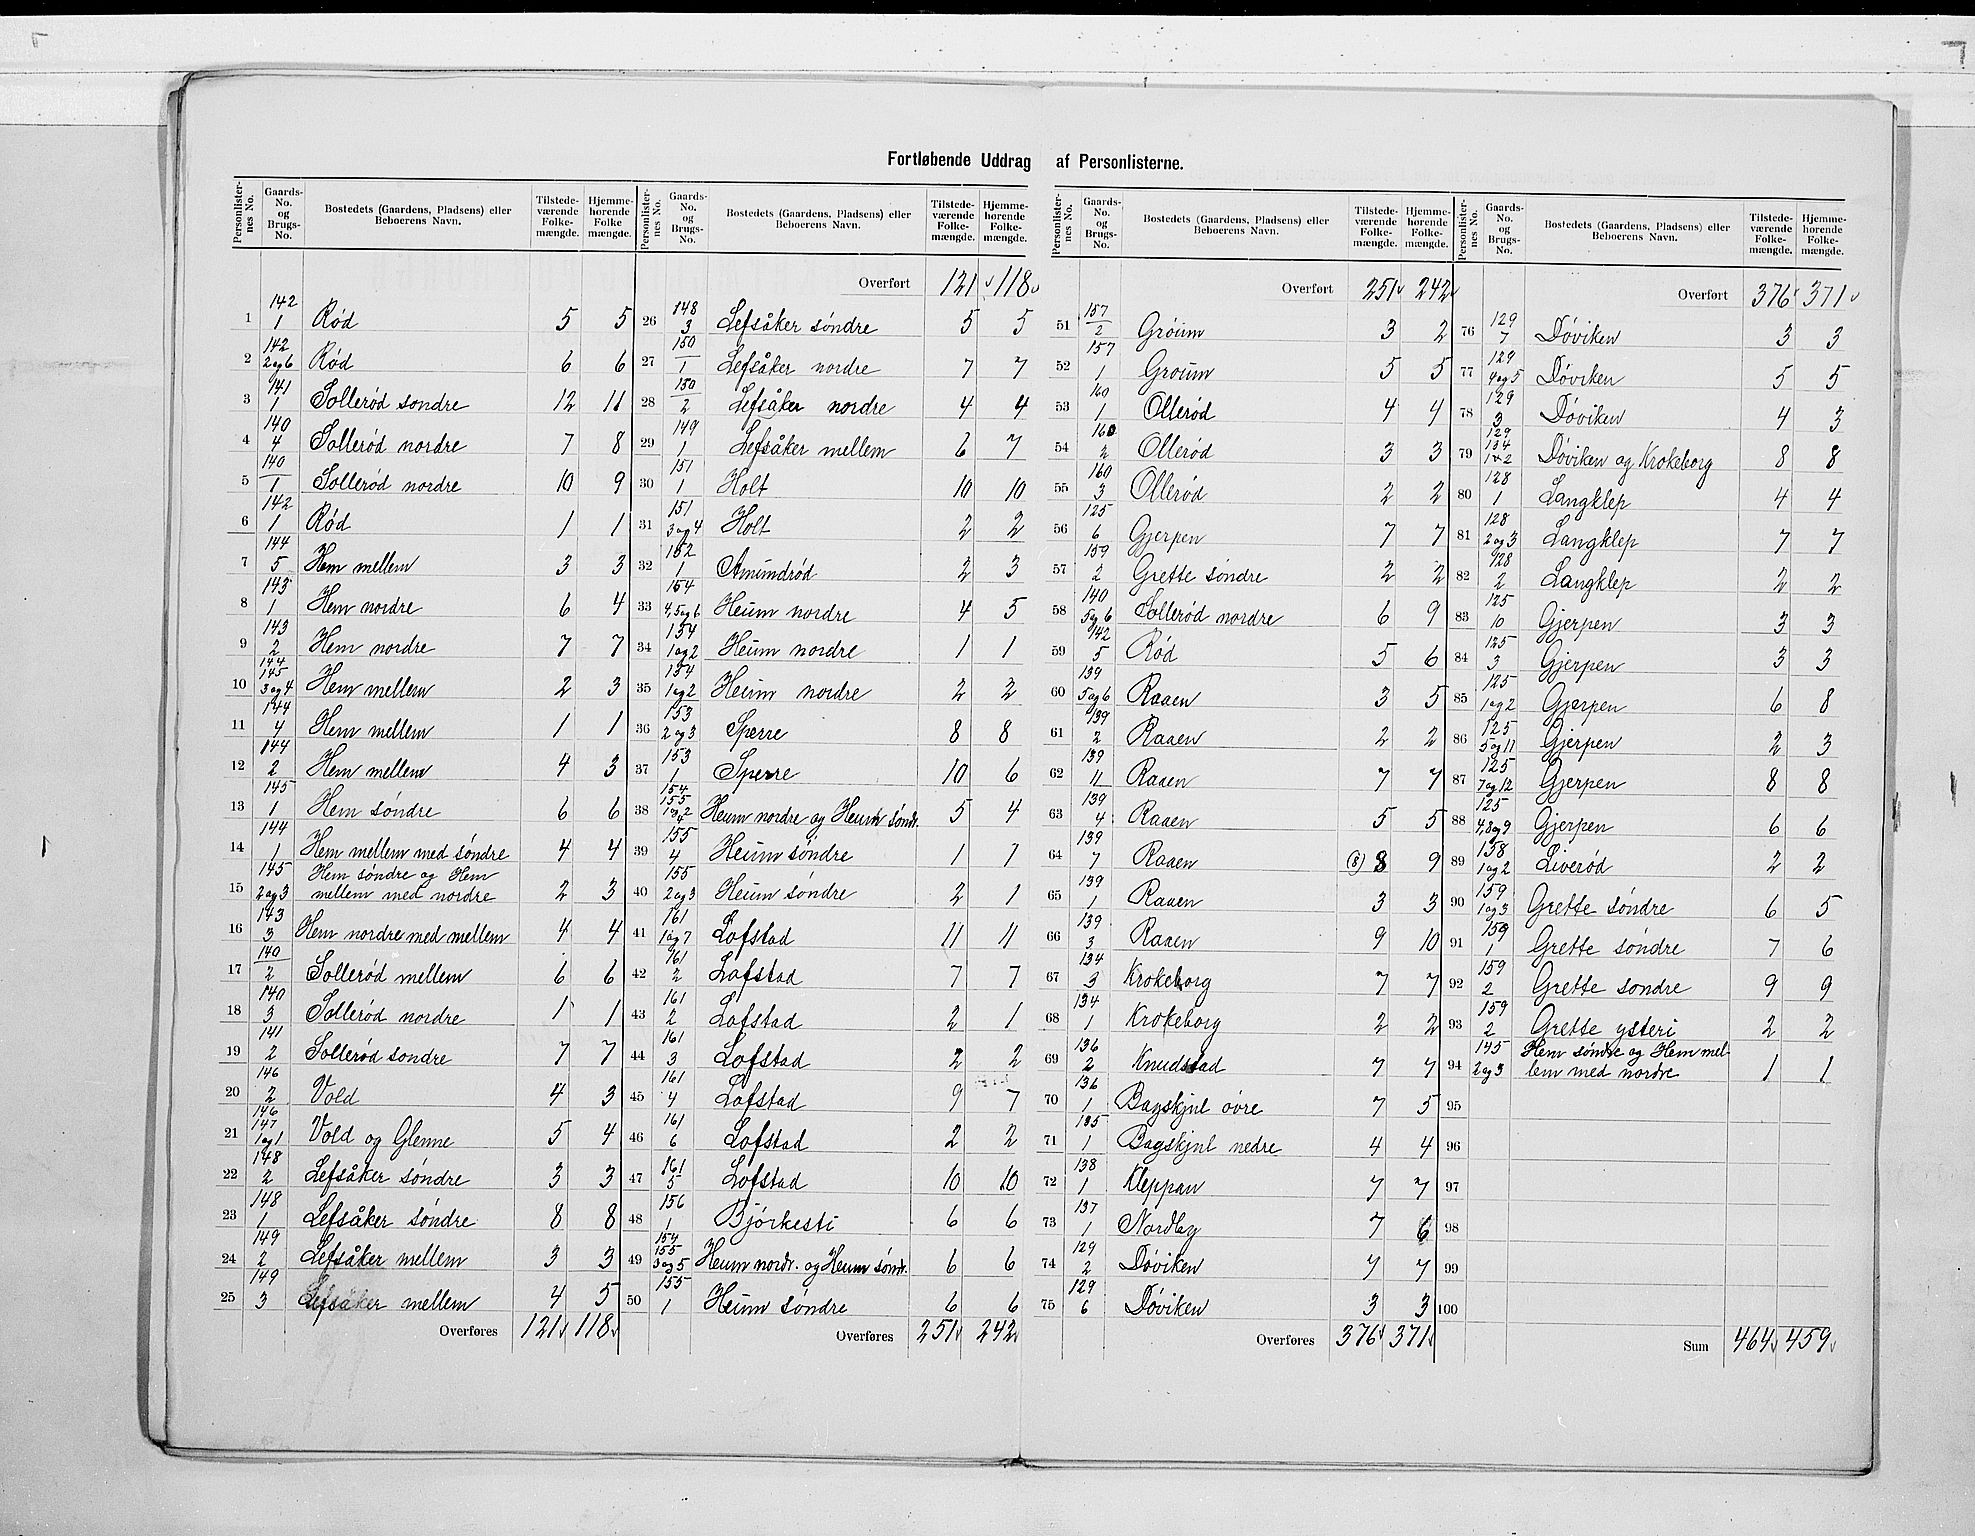 Fortløbende Uddrag af Personlisterne.
Personlister-nes No. | Gaards-No. og Brugs-No. | Bostedets (Gaardens, Pladsens) eller Beboerens Navn. | Tilstede-værende Folke-mængde. | Hjemme-hørende Folke-mængde.
1 | 142/1 | Rød | 5 | 5
2 | 142/2 og 6 | Rød | 6 | 6
3 | 141/1 | Sollerød sondre | 12 | 11
4 | 140/4 | Sollerød nordre | 7 | 8
5 | 140/1 | Sollerød nordre | 10 | 9
6 | 142/1 | Rød | 1 | 1
7 | 144/5 | Hem mellem | 3 | 3
8 | 143/1 | Hem nordre | 6 | 4
9 | 143/2 | Hem nordre | 7 | 7
10 | 144 145/3 og 4 | Hem mellem | 2 | 3
11 | 144/4 | Hem mellem | 1 | 1
12 | 144/2 | Hem mellem | 4 | 3
13 | 145/1 | Hem søndre | 6 | 6
14 | 144/1 | Hem mellem med søndre | 4 | 4
15 | 145/2 og 3 | Hem søndre og Hem mellem med nordre | 2 | 3
16 | 143/3 | Hem nordre med mellem | 4 | 4
17 | 140/2 | Sollerød mellem | 6 | 6
18 | 140/3 | Sollerød nordre | 1 | 1
19 | 141/2 | Sollerød sondre | 7 | 7
20 | 146/2 | Vold | 4 | 3
21 | 146 147/1 og 1 | Vold og Glenne | 5 | 4
22 | 148/2 | Lefsåker søndre | 3 | 3
23 | 148/1 | Lefsåker søndre | 8 | 8
24 | 149/2 | Lefsåker mellem | 3 | 3
25 | 149/3 | Lefsåker mellem | 4 | 5
Overføres 121 118
Personlister-nes No. | Gaards-No. og Brugs-No. | Bostedets (Gaardens, Pladsens) eller Beboerens Navn. | Tilstede-værende Folke-mængde. | Hjemme-hørende Folke-mængde.
Overført 121 118
26 | 148/3 | Lefsåker søndre | 5 | 5
27 | 150/1 | Lefsåker nordre | 7 | 7
28 | 150/2 | Lefsåker nordre | 4 | 4
29 | 149/1 | Lefsåker mellem | 6 | 7
30 | 151/1 | Holt | 10 | 10
31 | 151/3 og 4 | Holt | 2 | 2
32 | 152/1 | Amundrød | 2 | 3
33 | 154/4, 5 og 6 | Heum nordre | 4 | 5
34 | 154/1 og 2 | Heum nordre | 1 | 1
35 | 154/1 og 2 | Heum nordre | 2 | 2
36 | 153/2 og 3 | Sperre | 8 | 8
37 | 153/1 | Sperre | 10 | 6
38 | 154 155 | Heum nordre og Heum søndr. | 5 | 4
39 | 155/4 | Heum søndre | 1 | 1
40 | 155/2 og 3 | Heum søndre | 2 | 1
41 | 161/1 og 7 | Lofstad | 11 | 11
42 | 161/2 | Lofstad | 7 | 7
43 | 161/2 | Lofstad | 2 | 1
44 | 161/3 | Lofstad | 2 | 2
45 | 161/4 | Lofstad | 9 | 7
46 | 161/6 | Lofstad | 2 | 2
47 | 161/5 | Lofstad | 10 | 10
48 | 156/1 | Bjørkesti | 6 | 6
49 | 154 155/3 og 5 | Heum nordr. og Heum søndr. | 6 | 6
50 | 155/1 | Heum søndre | 6 | 6
Overføres 251 242
Personlister-nes No. | Gaards-No. og Brugs-No. | Bostedets (Gaardens, Pladsens) eller Beboerens Navn. | Tilstede-værende Folke-mængde. | Hjemme-hørende Folke-mængde.
Overført 251 242
51 | 157/2 | Grøum | 3 | 2
52 | 157/1 | Groum | 5 | 5
53 | 160/1 | Ollerød | 4 | 4
54 | 160/2 | Ollerød | 3 | 3
55 | 160/3 | Ollerød | 2 | 2
56 | 125/6 | Gjerpen | 7 | 7
57 | 159/2 | Grette søndre | 2 | 2
58 | 140/5 og 6 | Sollerød nordre | 6 | 9
59 | 142/5 | Rød | 5 | 6
60 | 139/5 og 6 | Raaen | 3 | 5
61 | 139/2 | Raaen | 2 | 2
62 | 139/11 | Raaen | 7 | 7
63 | 139/4 | Raaen | 5 | 5
64 | 139/7 | Raaen | (8) 8 | 9
65 | 139/1 | Raaen | 3 | 3
66 | 139/3 | Raaen | 9 | 10
67 | 134/3 | Krokeborg | 7 | 7
68 | 134/1 | Krokeborg | 2 | 2
69 | 136/2 | Knudstad | 7 | 7
70 | 136/1 | Bagskjul øvre | 7 | 5
71 | 135/1 | Bagskjul nedre | 4 | 4
72 | 138/1 | Kleppan | 7 | 7
73 | 137/1 | Nordby | 7 | 6
74 | 129/2 | Døviken | 7 | 7
75 | 129/6 | Døviken | 3 | 3
Overføres 376 371
Personlister-nes No. | Gaards-No. og Brugs-No. | Bostedets (Gaardens, Pladsens) eller Beboerens Navn. | Tilstede-værende Folke-mængde. | Hjemme-hørende Folke-mængde.
Overført 376 371
76 | 129/7 | Døviken | 3 | 3
77 | 129/4 og 5 | Døviken | 5 | 5
78 | 129/3 | Døviken | 4 | 3
79 | 129 134/1 & 2 | Døviken og Krokeborg | 8 | 8
80 | 128/1 | Langklep | 4 | 4
81 | 128/2 og 3 | Langklep | 7 | 7
82 | 128/2 | Langklep | 2 | 2
83 | 125/10 | Gjerpen | 3 | 3
84 | 125/3 | Gjerpen | 3 | 3
85 | 125/1 og 2 | Gjerpen | 6 | 8
86 | 125/5 og 11 | Gjerpen | 2 | 3
87 | 125/7 og 12 | Gjerpen | 8 | 8
88 | 125/4, 8 og 9 | Gjerpen | 6 | 6
89 | 158/1 og 2 | Liverød | 2 | 2
90 | 159/1 og 3 | Grette søndre | 6 | 5
91 | 159/1 | Grette søndre | 7 | 6
92 | 159/2 | Grette sondre | 9 | 9
93 | 159/2 | Grette ysteri | 2 | 2
94 | 145/2 og 3 | Hem søndre og Hem mel-lem med nordre | 1 | 1
95
96
97
98
99
100
Sum 464 459